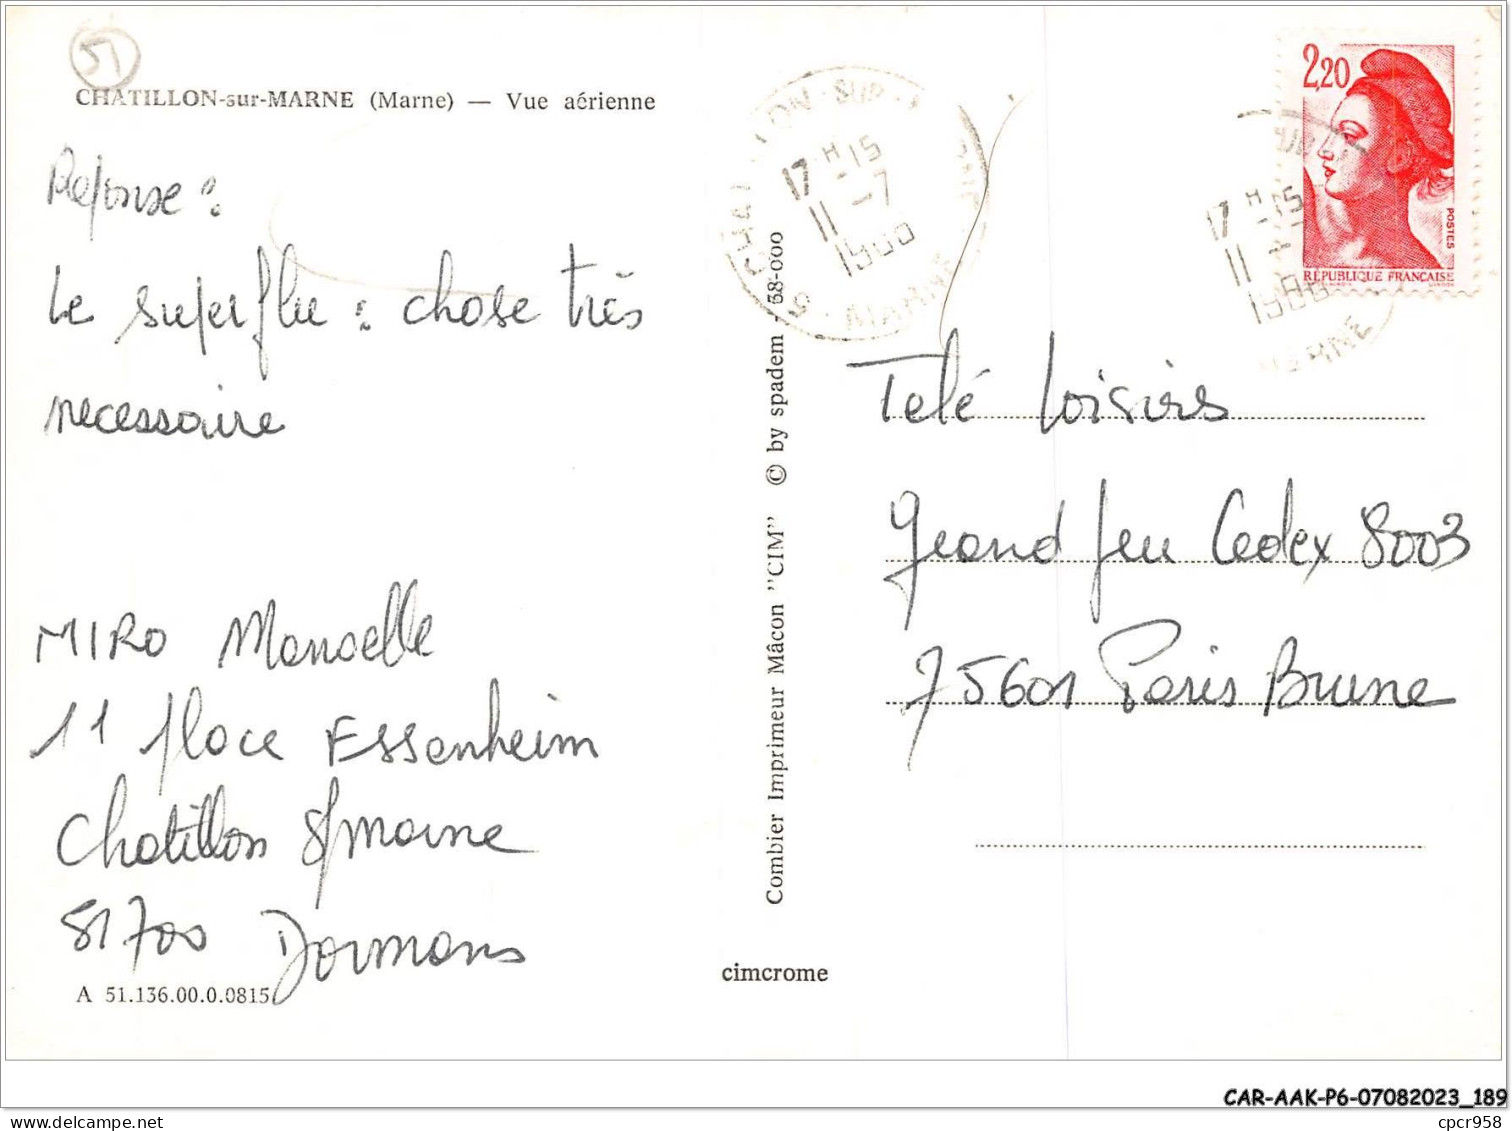 51
CHATILLON-sur-MARNE (Marne) — Vue aérienne
Reponse :
Le superflu : chose très
necessaire
MIRO Manaelle
11 place Essenheim
Chatillon s/marne
51700 Dormans
A 51.136.00.0.0815
Combier Imprimeur Mâcon "CIM" © by spadem - 58-000
cimcrome
17 H 15
11 -7
MARNE
2,20
POSTES
RÉPUBLIQUE FRANÇAISE
17 H 15
Telé Loisirs
grand Jeu Cedex 8003
75601 Paris Brune
CAR-AAK-P6-07082023_189
www.delcampe.net
cpcr958